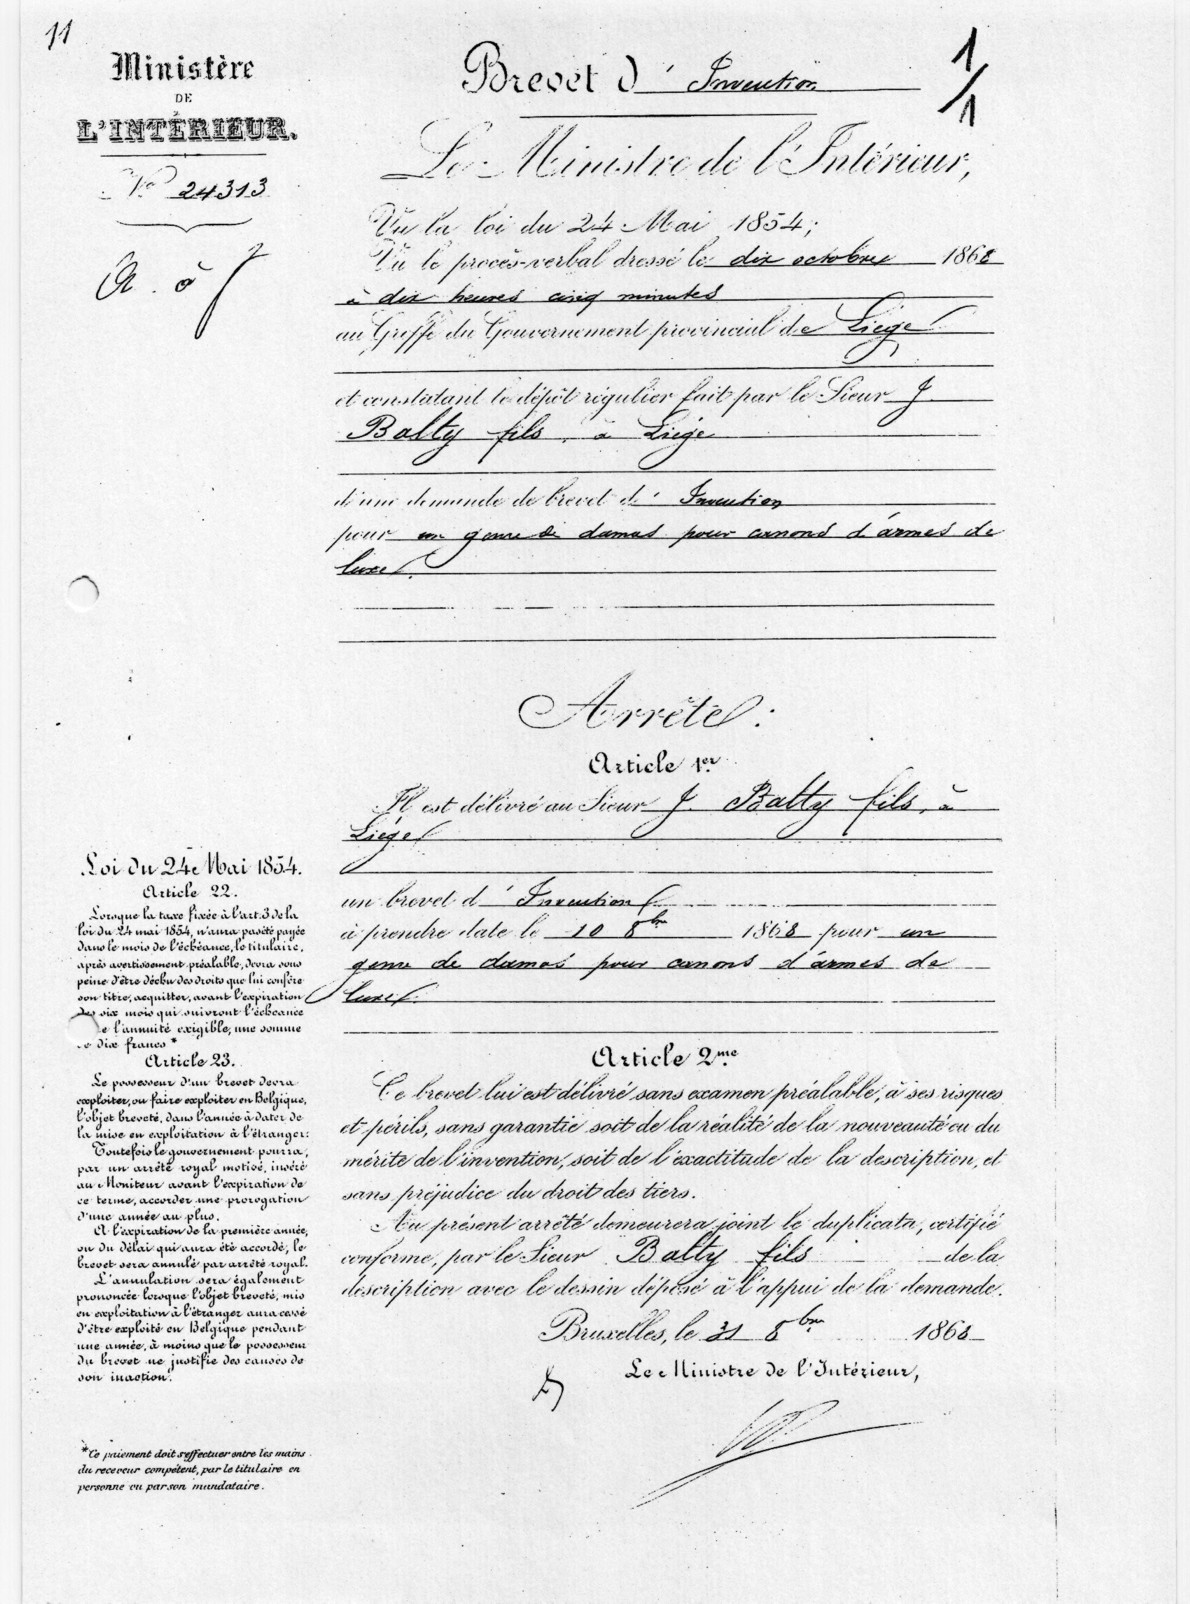 11
Ministère
DE
L'INTÉRIEUR.
No 24313
Brevet d' Invention
1/1
Le Ministre de l'Intérieur,
Vu la loi du 24 Mai 1854;
Vu le procès-verbal dressé le dix octobre 1868
à dix heures cinq minutes
au Greffe du Gouvernement provincial de Liége
et constatant le dépôt régulier fait par le Sieur J.
Balty fils, à Liége
d'une demande de brevet d' Invention
pour un genre de damas pour canons d'armes de
luxe.
Arrête:
Article 1er.
Il est délivré au Sieur J. Balty fils, à
Liége
un brevet d' Invention
à prendre date le 10 8bre 1868 pour un
genre de damas pour canons d'armes de
luxe.
Article 2me.
Ce brevet lui est délivré sans examen préalable, à ses risques
et périls, sans garantie soit de la réalité de la nouveauté ou du
mérite de l'invention, soit de l'exactitude de la description, et
sans préjudice du droit des tiers.
Au présent arrêté demeurera joint le duplicata, certifié
conforme, par le Sieur Balty fils de la
description avec le dessin déposé à l'appui de la demande.
Bruxelles, le 31 8bre 1868
Le Ministre de l'Intérieur,
Loi du 24 Mai 1854.
Article 22.
Lorsque la taxe fixée à l'art. 3 de la
loi du 24 mai 1854, n'aura pas été payée
dans le mois de l'échéance, le titulaire,
après avertissement préalable, devra sous
peine d'être déchu des droits que lui confère
son titre, acquitter, avant l'expiration
des six mois qui suivront l'échéance
de l'annuité exigible, une somme
de dix francs *
Article 23.
Le possesseur d'un brevet devra
exploiter, ou faire exploiter en Belgique,
l'objet breveté, dans l'année à dater de
la mise en exploitation à l'étranger:
Toutefois le gouvernement pourra,
par un arrêté royal motivé, inséré
au Moniteur avant l'expiration de
ce terme, accorder une prorogation
d'une année au plus.
A l'expiration de la première année,
ou du délai qui aura été accordé, le
brevet sera annulé par arrêté royal.
L'annulation sera également
prononcée lorsque l'objet breveté, mis
en exploitation à l'étranger aura cessé
d'être exploité en Belgique pendant
une année, à moins que le possesseur
du brevet ne justifie des causes de
son inaction.
* Ce paiement doit s'effectuer entre les mains
du receveur compétent, par le titulaire en
personne ou par son mandataire.